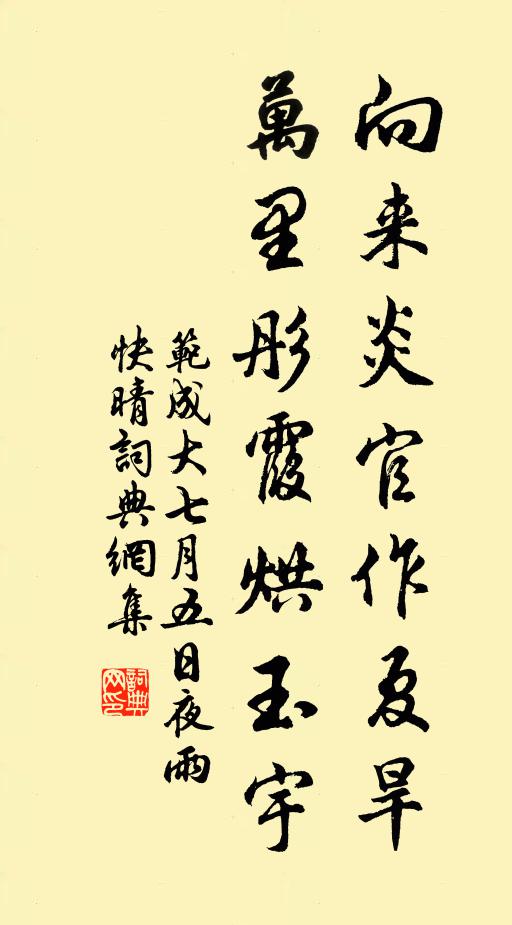 向来炎官作夏旱
萬里彤霞烘玉宇
範成大七月五日夜雨
快晴詞典網集
詞典网印